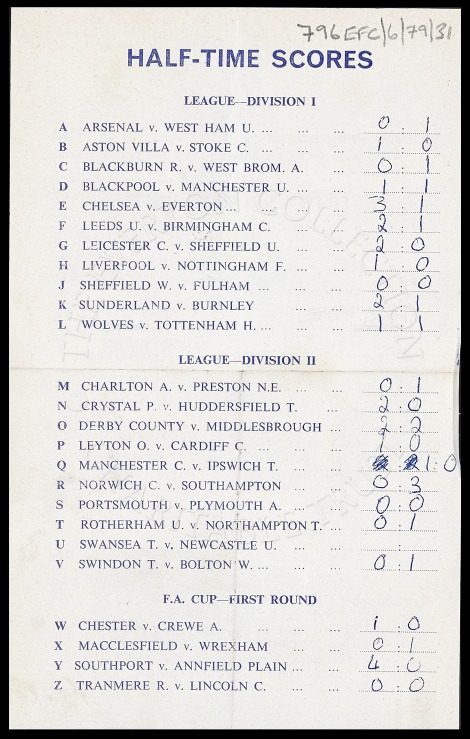 796EFC/6/79/31
HALF-TIME SCORES
LEAGUE—DIVISION I
A ARSENAL v. WEST HAM U. ... ... ... 0 : 1
B ASTON VILLA v. STOKE C. ... ... ... 1 : 0
C BLACKBURN R. v. WEST BROM. A. ... 0 : 1
D BLACKPOOL v. MANCHESTER U. ... ... 1 : 1
E CHELSEA v. EVERTON ... ... ... 3 : 1
F LEEDS U. v. BIRMINGHAM C. ... ... 2 : 1
G LEICESTER C. v. SHEFFIELD U. ... ... 2 : 0
H LIVERPOOL v. NOTTINGHAM F. ... ... 1 : 0
J SHEFFIELD W. v. FULHAM ... ... ... 0 : 0
K SUNDERLAND v. BURNLEY ... ... 2 : 1
L WOLVES v. TOTTENHAM H. ... ... ... 1 : 1
LEAGUE—DIVISION II
M CHARLTON A. v. PRESTON N.E. ... ... 0 : 1
N CRYSTAL P. v. HUDDERSFIELD T. ... 2 : 0
O DERBY COUNTY v. MIDDLESBROUGH ... 2 : 2
P LEYTON O. v. CARDIFF C. ... ... ... 1 : 0
Q MANCHESTER C. v. IPSWICH T. ... 1 : 0
R NORWICH C. v. SOUTHAMPTON ... ... 0 : 3
S PORTSMOUTH v. PLYMOUTH A. ... ... 0 : 0
T ROTHERHAM U. v. NORTHAMPTON T. ... 0 : 1
U SWANSEA T. v. NEWCASTLE U. ... ... :
V SWINDON T. v. BOLTON W. ... ... ... 0 : 1
F.A. CUP—FIRST ROUND
W CHESTER v. CREWE A. ... ... ... 1 : 0
X MACCLESFIELD v. WREXHAM ... ... 0 : 1
Y SOUTHPORT v. ANNFIELD PLAIN ... ... 4 : 0
Z TRANMERE R. v. LINCOLN C. ... ... 0 : 0